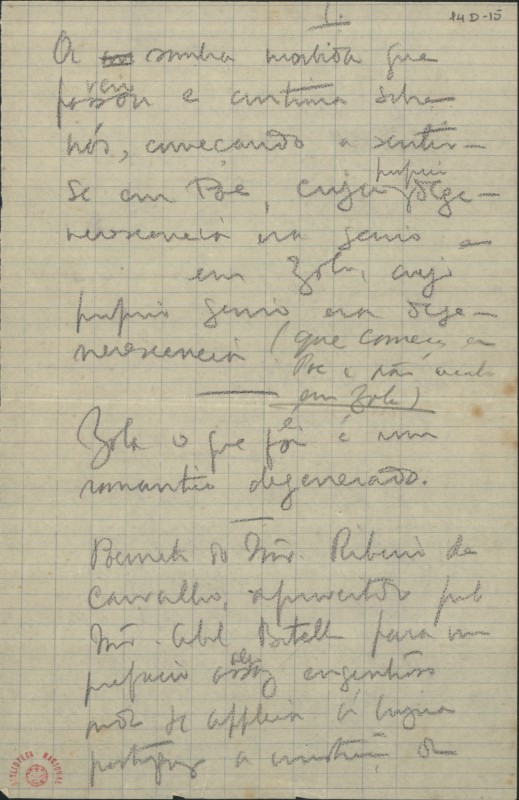 I.
14D-15
A sombra morbida que
passou e continua sobre
nós, começando a sentir-
se em Poe, cuja propria dege-
nerescencia era genio e
em Zola, cujo
proprio genio era dege-
nerescencia (que começa em
Poe e não acaba
em Zola)
Zola o que foi é um
romantico degenerado.
do Snr. Ribeiro de
Carvalho, aproveitado pelo
Snr. Abel Botelho para um
prefacio engenhoso
se applica á lingua
portugueza a
BIBLIOTECA NACIONAL